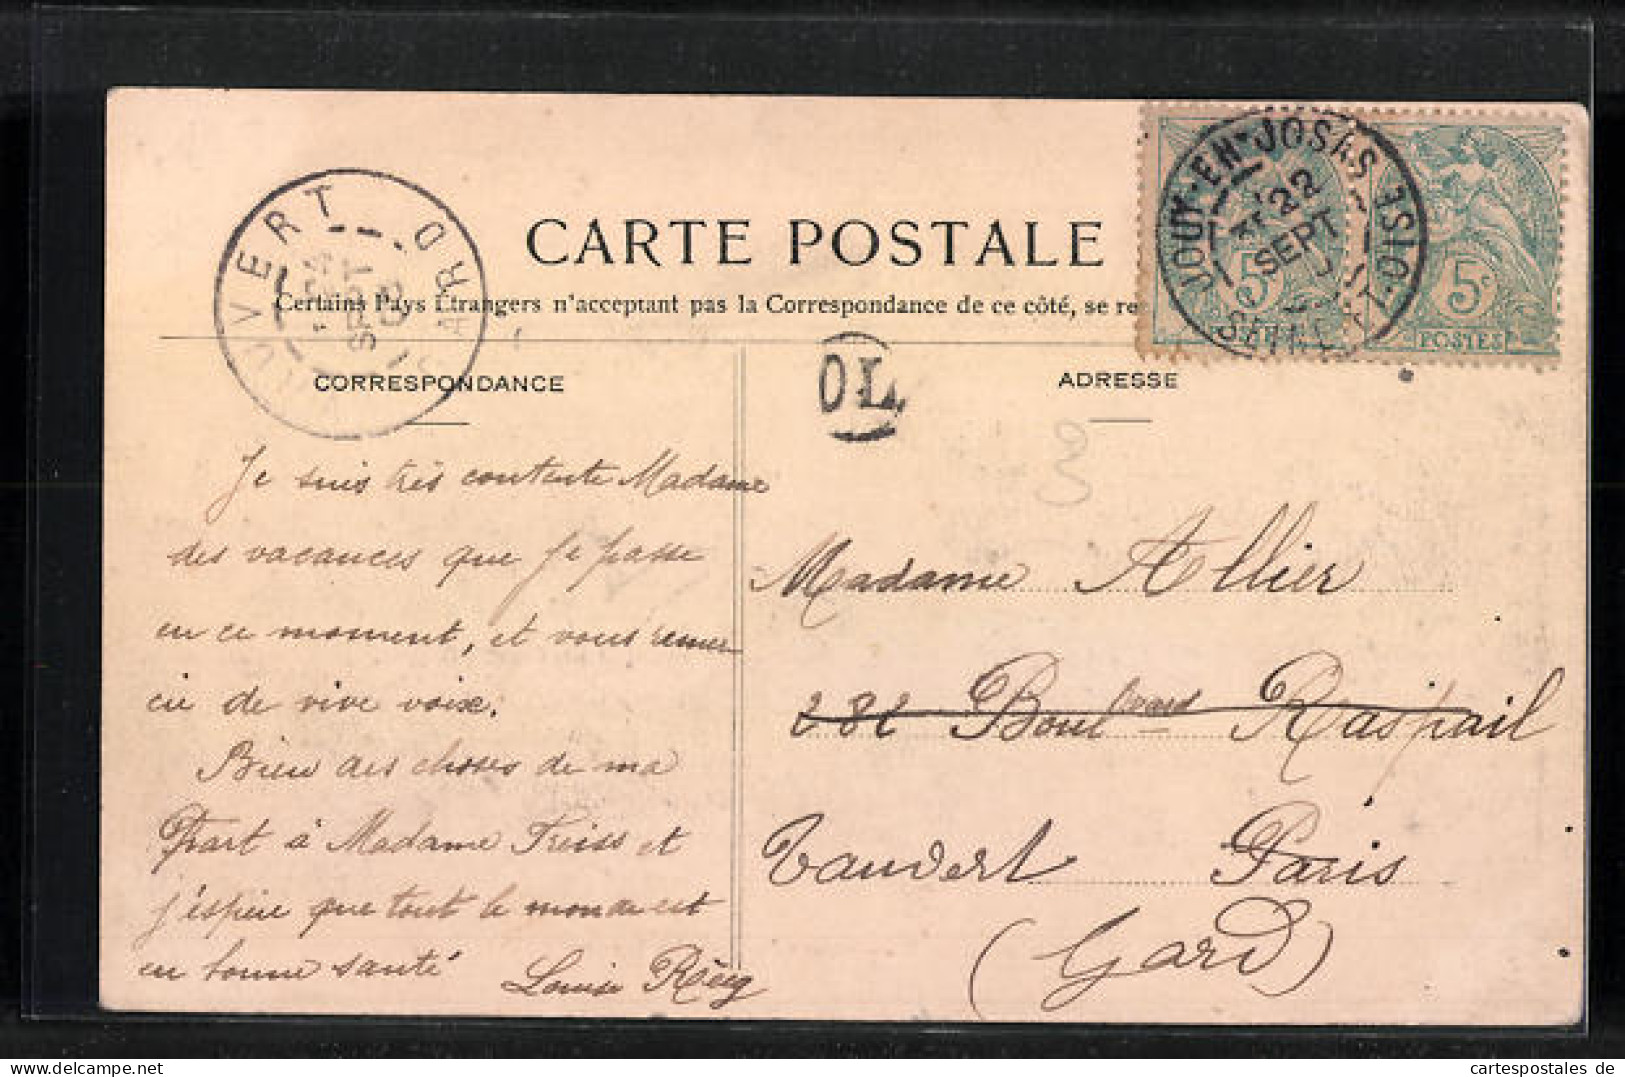 CARTE POSTALE
Certains Pays Étrangers n'acceptant pas la Correspondance de ce côté, se re
CORRESPONDANCE
ADRESSE
VAUVERT GARD
SEPT
JOUY-EN-JOSAS SEINE-ET-OISE
22
SEPT
5c
5c
POSTES
OL
3
Je suis très contente Madame
des vacances que je passe
en ce moment, et vous remer
cie de vive voix.
Bien des choses de ma
part à Madame Treiss et
j'éspère que tout le monde est
en bonne santé
Louise
Madame Allier
282 Boulvard Raspail
Vauvert Paris
(Gard)
cartespostales.delcampe.net
cartespostales de